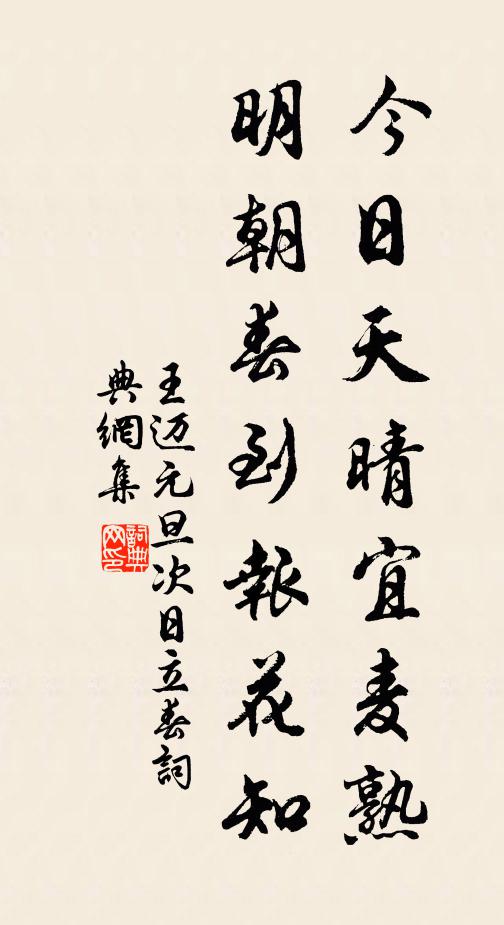 今日天晴宜麦熟
明朝春到報花知
王迈元旦次日立春詞
典網集
詞典网印